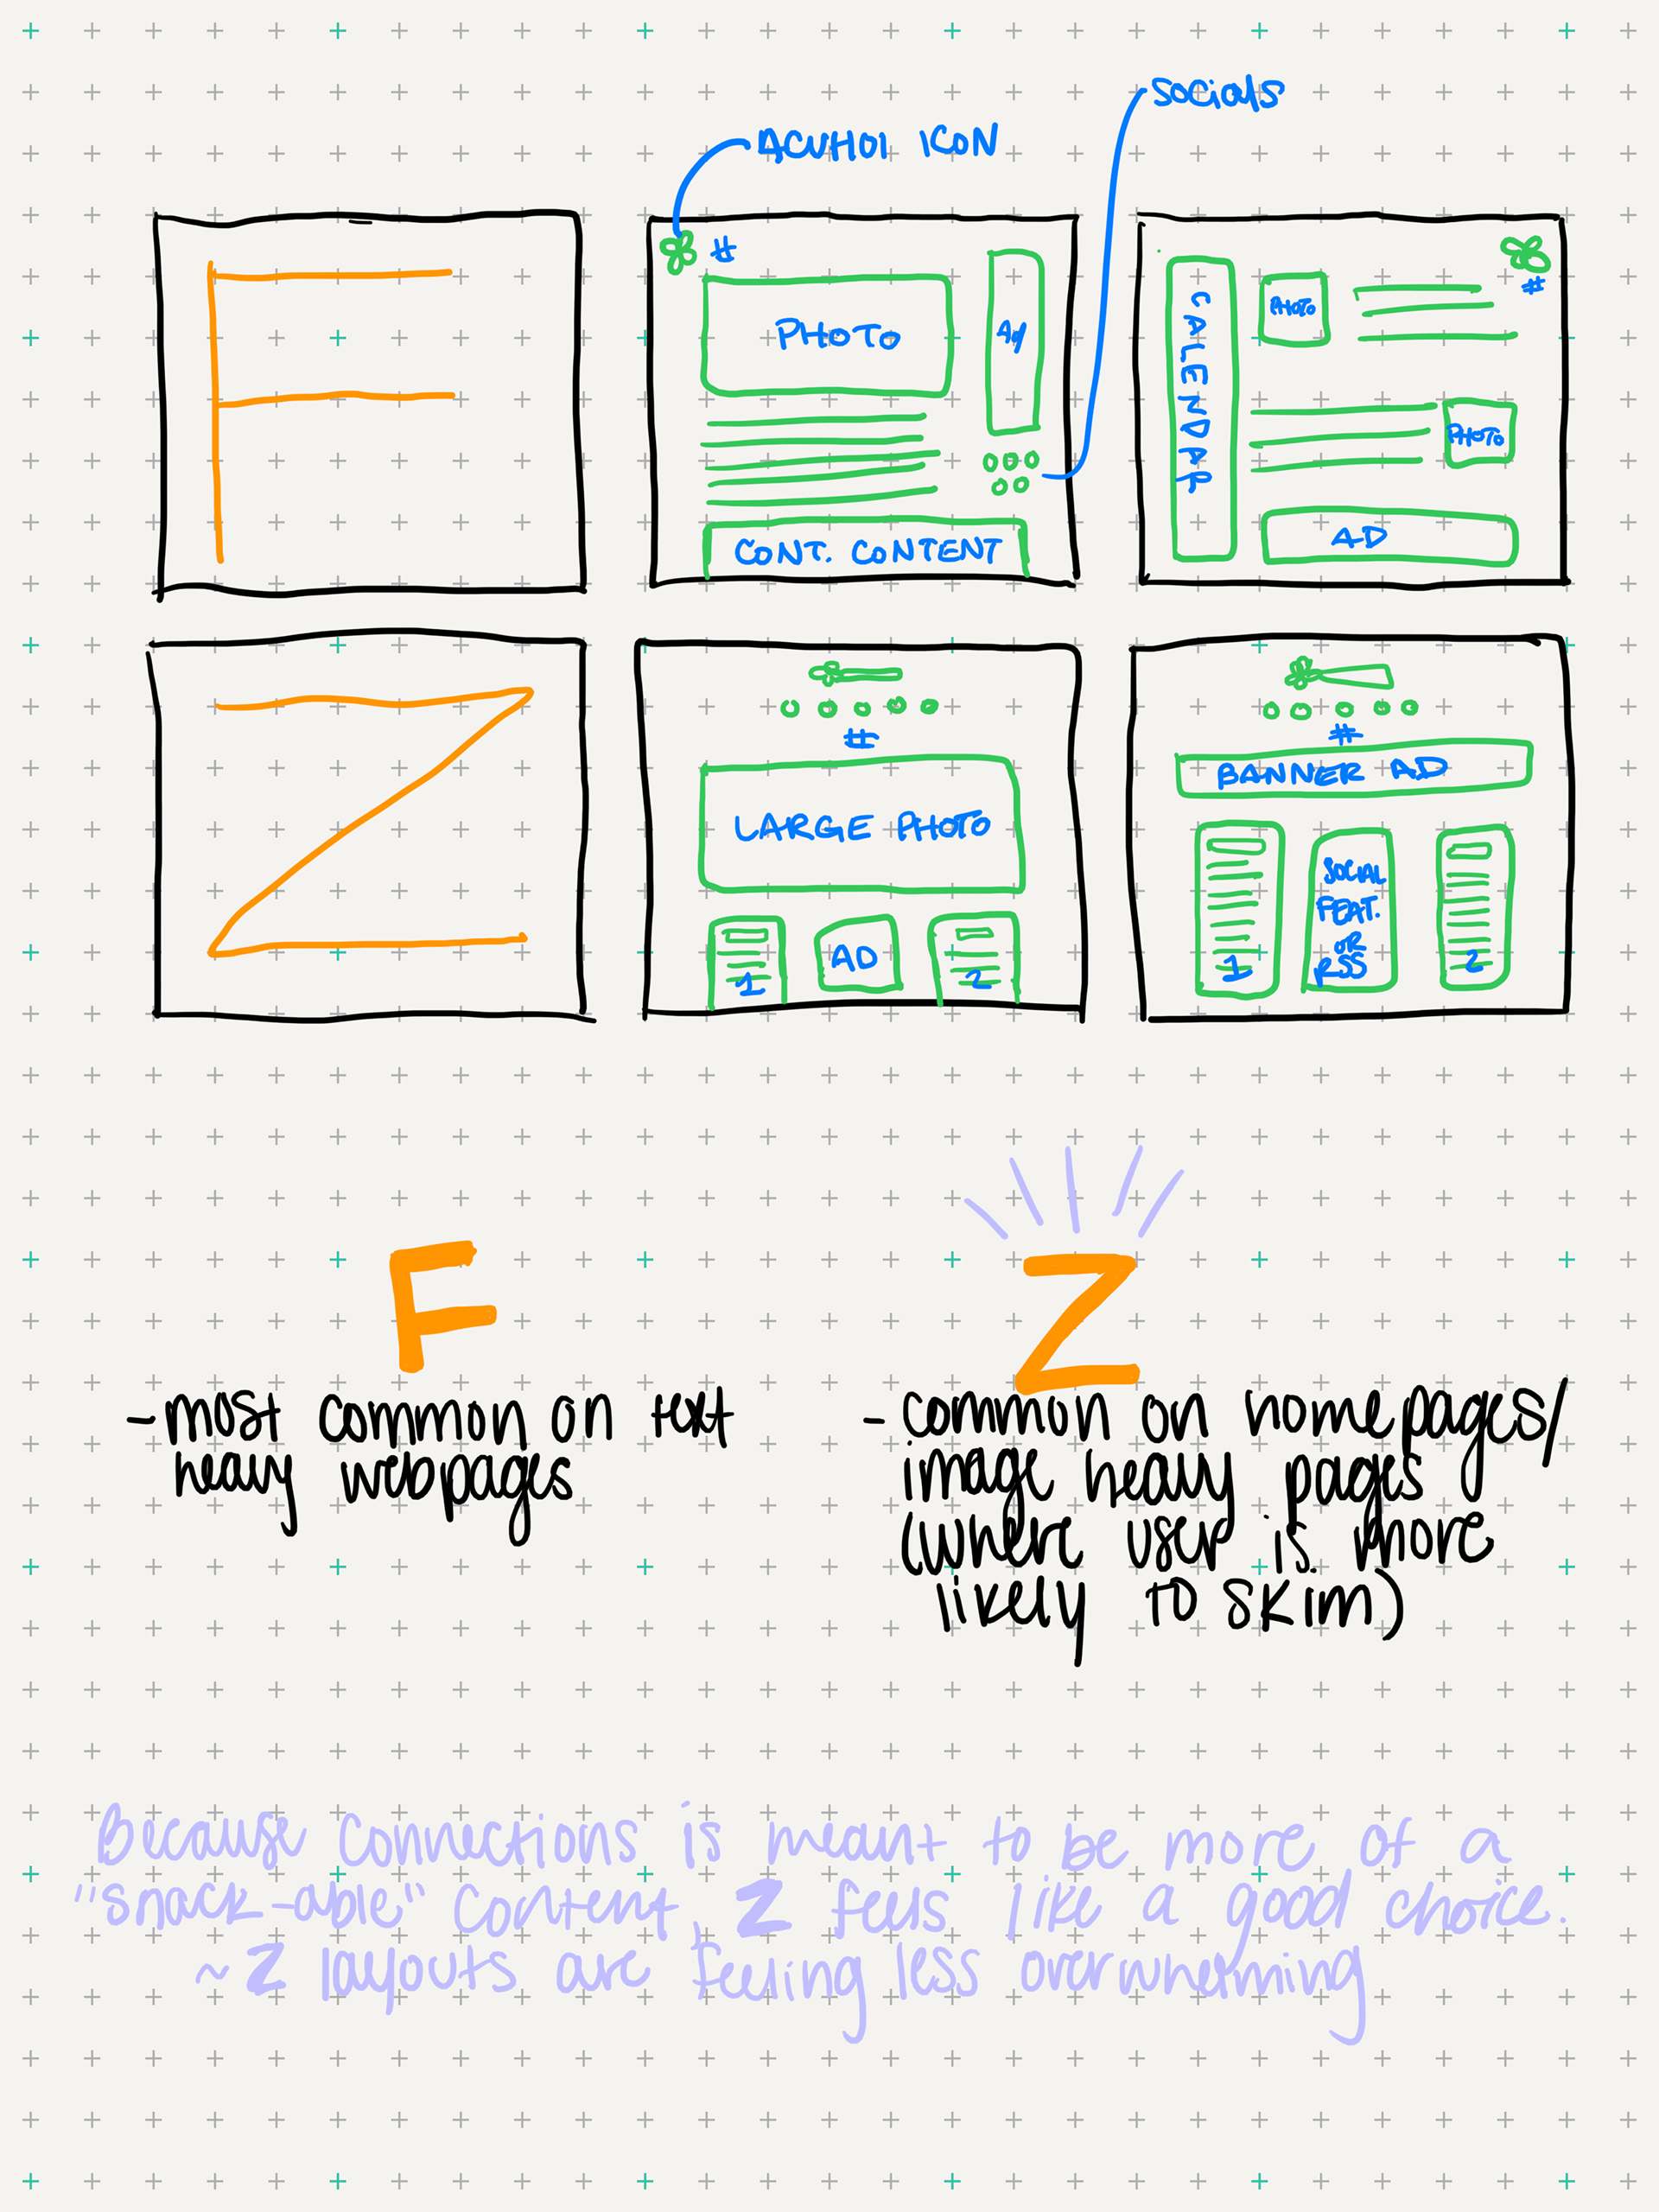 SOCIALS
ACUHOI ICON
F
#
PHOTO
AD
CONT. CONTENT
CALENDAR
PHOTO
#
PHOTO
AD
Z
#
LARGE PHOTO
1
AD
2
#
BANNER AD
1
SOCIAL
FEAT.
OR
RSS
2
F
- most common on text
heavy webpages
Z
- common on homepages/
image heavy pages
(where user is more
likely to skim)
Because Connections is meant to be more of a
"snack-able" content, Z feels like a good choice.
~ Z layouts are feeling less overwhelming